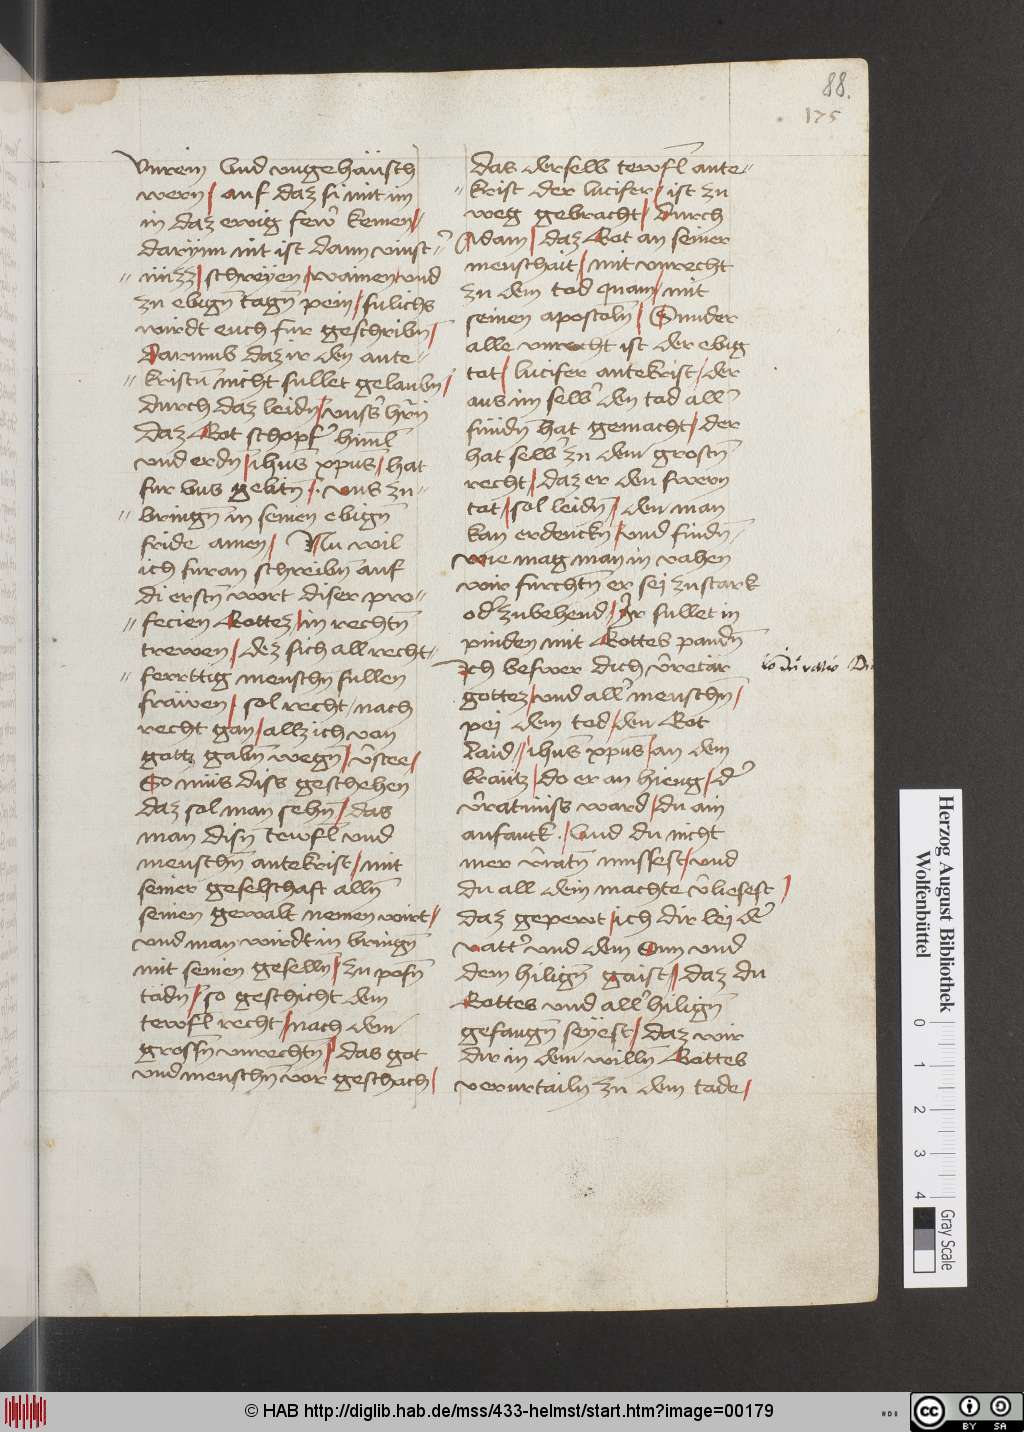 88.
175
vnrein vnd vngehäusch
wern / auf daz si mit im
in daz ewig fewr kemen /
darÿnn nit ist dann vinst͛
nüzz / schreÿen / wainen vnd
zu ebign̄ tagn̄ pein / sulichs
wirdt euch fur geschribn̄ /
Darumb daz ir den ante
kristū nicht sullet gelaubn̄ /
durch daz leidn̄ / vns͛s h͛rn̄
daz Got schopf͛ himl̄
vnd erdn̄ / ihūs xp̄us / hat
fur vns gelitn̄ / vns zu
bringn̄ in seinen ebign̄
fride amen / Nu wil
ich furan schreibn̄ auf
di erstn̄ wort diser pro
fecien Gottez / in rechtn̄
trewen / dez sich all recht
ferrttig menschn̄ sullen
fräwen / sol recht / nach
recht gan / allz ich von
gottz gabn̄ wegn̄ / v͛stee /
So müs diss geschehen
daz sol man sehn̄ / das
man disn̄ tewfl̄ vnd
menschn̄ antekrist / mit
seiner geselschaft alln̄
seinen gewalt nemen wirt /
vnd man wirdt in bringn̄
mit seinen geselln̄ / zu posn̄
tädn̄ / so geschicht dem
tewfl recht / nach dem
grossn̄ vnrechtn̄ / das got
vnd menschn̄ vor geschach /
das derselb tewfl̄ ante
krist der lucifer / ist zu
weg gebracht / durch
Adam / daz Got an seiner
menschait / mit vnrecht
zu dem tod quam / mit
seinen apostoln̄ / Sunder
alle vnrecht ist der ebig
tot / lucifer antekrist / der
aus im selb͛ den tod all͛
sündn̄ hat gemacht / der
hat selb͛ zu dem grostn̄
recht / daz er den swern
tot / sol leidn̄ / den man
kan erdenckn̄ / vnd findn̄ /
wie mag man in vahen
wir furchtn̄ er sei zustark
od͛ zubehend / Ir sullet in
pinden mit Gottes pandn̄
Ich beswer dich v͛retär
gottez / vnd all͛ menschn̄ /
pei dem tod / den Got
laid / ihūs xp̄us / an dem
kräutz / do er an hieng / d͛
v͛ratnüss ward / du ain
anfanck / Vnd du nicht
mer v͛ratn̄ mussest / vnd
du all dein machte v͛liesest /
daz gepewt / ich dir bei d͛
vatt͛ vnd dem Sun vnd
dem hilign̄ gaist / daz du
Gottes vnd all͛ hilign̄
gefangn̄ seÿest / daz wir
dir in dem willn̄ Gottes
verurtailn̄ zu dem tode /
Herzog August Bibliothek
Wolfenbüttel
0 1 2 3 4
Gray Scale
© HAB http://diglib.hab.de/mss/433-helmst/start.htm?image=00179
cc BY SA